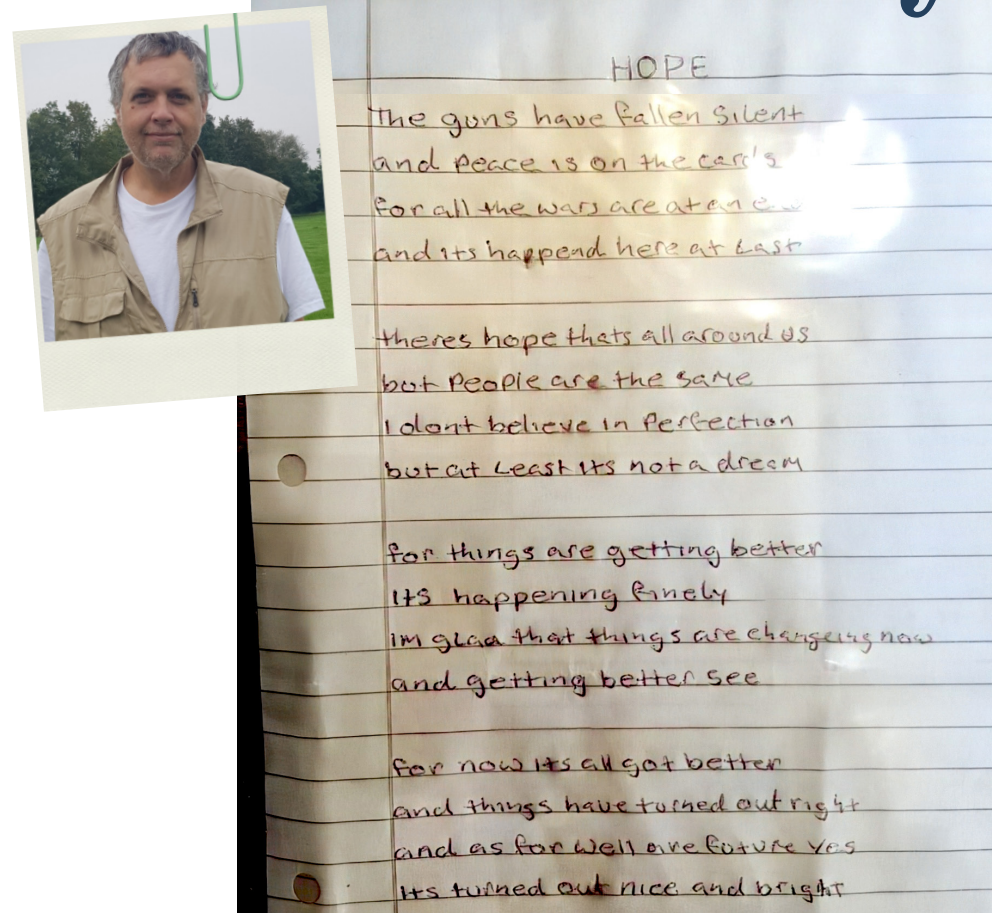 HOPE
The guns have fallen silent
and peace is on the card's
for all the wars are at an
and its happend here at Last
theres hope thats all around us
but people are the same
I dont believe in perfection
but at Least its not a dream
for things are getting better
its happening finely
im glad that things are changeing now
and getting better see
for now its all got better
and things have turned out right
and as for well are future yes
its turned out nice and bright